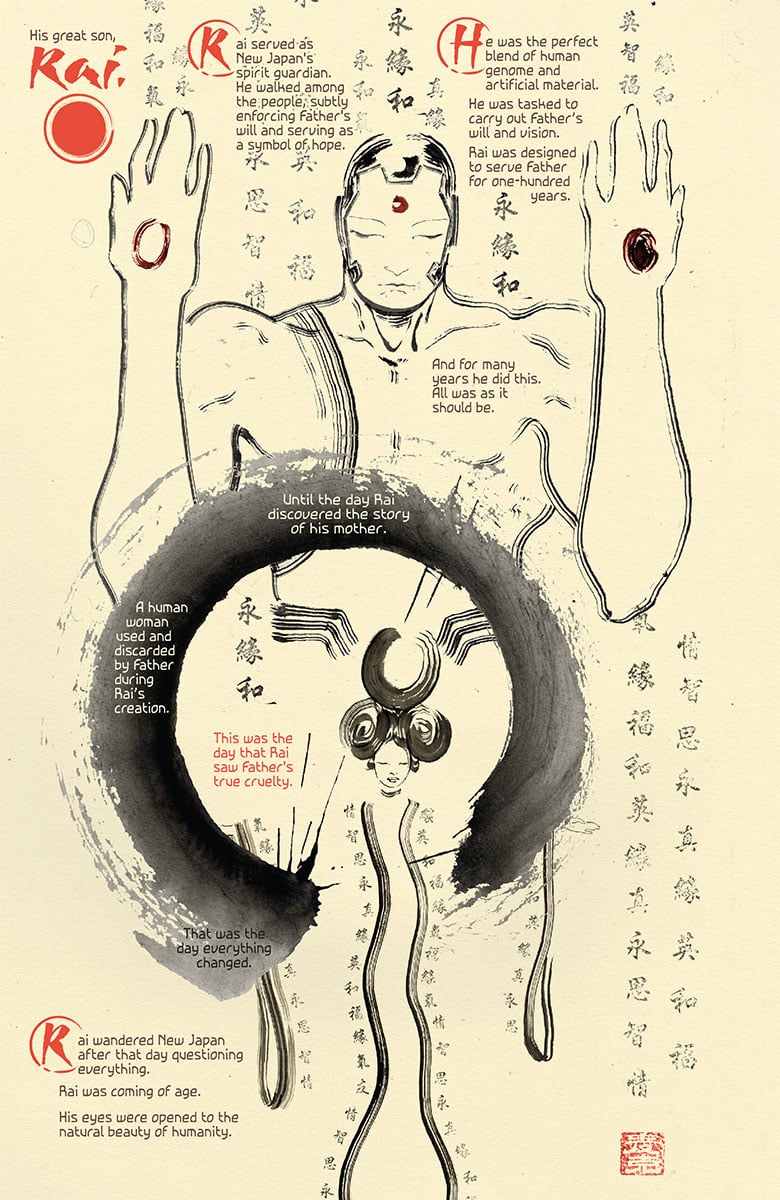 His great son,
Rai.
Rai served as
New Japan's
spirit guardian.
He walked among
the people, subtly
enforcing Father's
will and serving as
a symbol of hope.
He was the perfect
blend of human
genome and
artificial material.
He was tasked to
carry out Father's
will and vision.
Rai was designed
to serve Father
for one-hundred
years.
And for many
years he did this.
All was as it
should be.
Until the day Rai
discovered the story
of his mother.
A human
woman
used and
discarded
by Father
during
Rai's
creation.
This was the
day that Rai
saw Father's
true cruelty.
That was the
day everything
changed.
Rai wandered New Japan
after that day questioning
everything.
Rai was coming of age.
His eyes were opened to the
natural beauty of humanity.
永緣和
永思智情
英和福
永緣和
永緣和
英智福
緣和
緣福和英緣真永思智情
情智思永真緣英和福